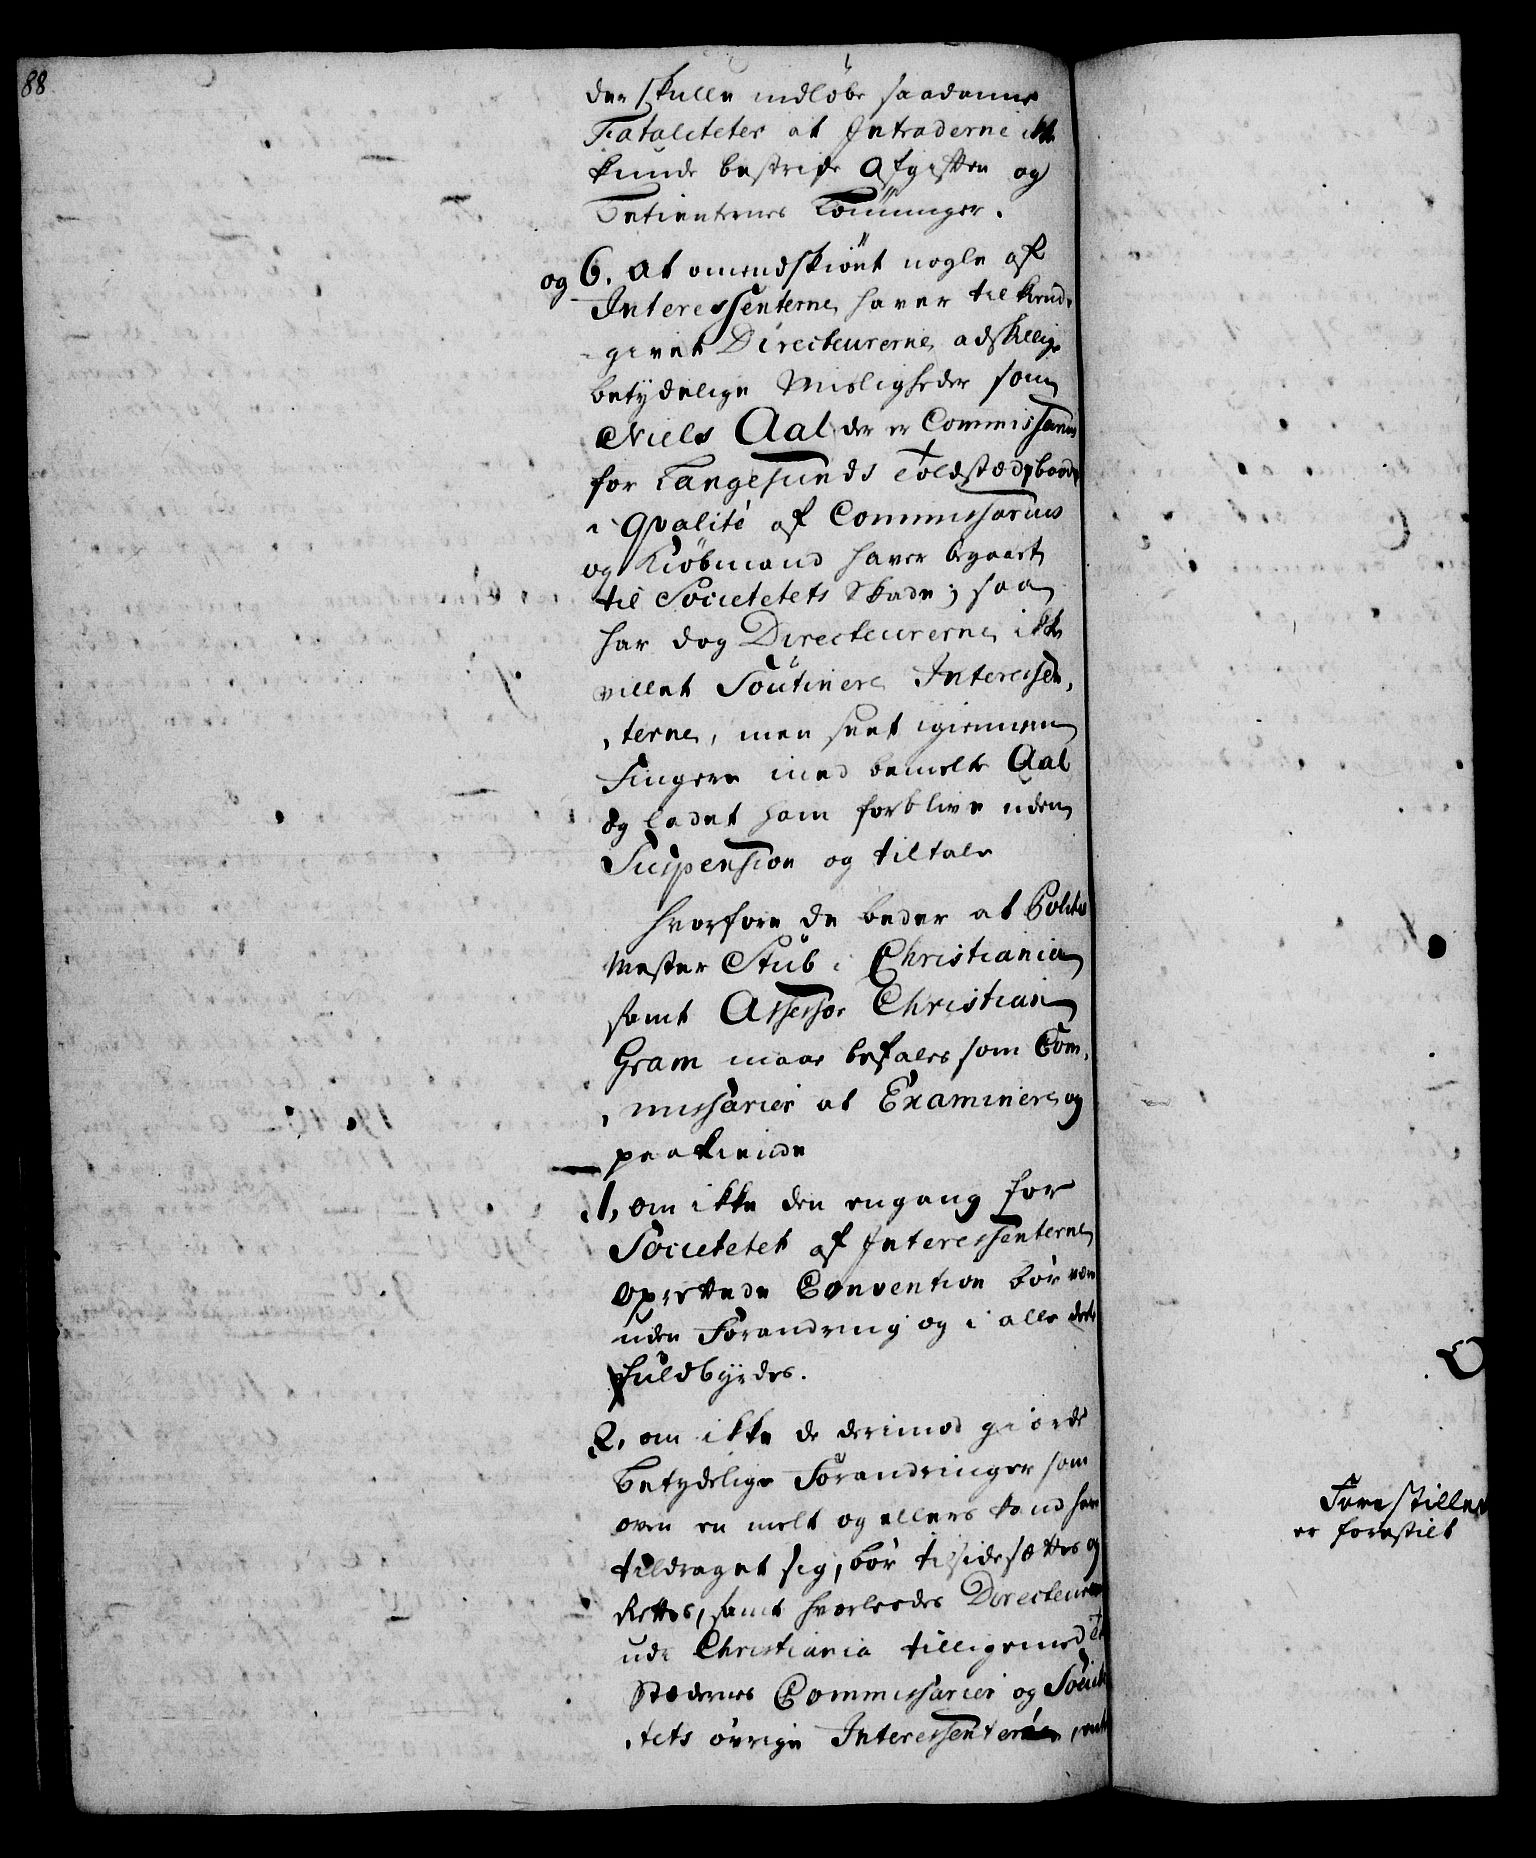 88
der skulle indløbe saadanne
Fataliteter at Intraderne ikke
kunde bestride Afgiften og
Betienternes Lønninger.
og 6. at omendskiønt nogle af
Interessenterne haver tilkiende
givet Directeurerne adskillige
betydelige Misligheder som
Niels Aal der er Commissarius
for Langesunds Toldsted, baade
i Qvalité af Commissarius
og Kiøbmand haver begaaet
til Societetets Skade; saa
har dog Directeurerne ikke
villet Soutinere Interessen,
,terne, men seet igiennem
Fingere med bemelte Aal
og ladet ham forblive uden
Suspension og tiltale
hvorfore de beder at Politie
Mester Stub i Christiania
samt Assessor Christian
Gram maae befales som Com,
,missarier at Examinere og
paakiende
1, om ikke den engang for
Societetet af Interessenterne
oprettede Convention bør være
uden Forandring og i alle dele
fuldbyrdes.
2, om ikke de derimod giorde
betydelige Forandringer som
oven er melt og ellers kand have
tildraget sig, bør tilsidesættes og
Rettes, samt hvorledes Directeurerne
udi Christiania tilligemed
Stædernes Commissarier og Societe
,tets øvrige Interessentere
Forestilles
er forestilt